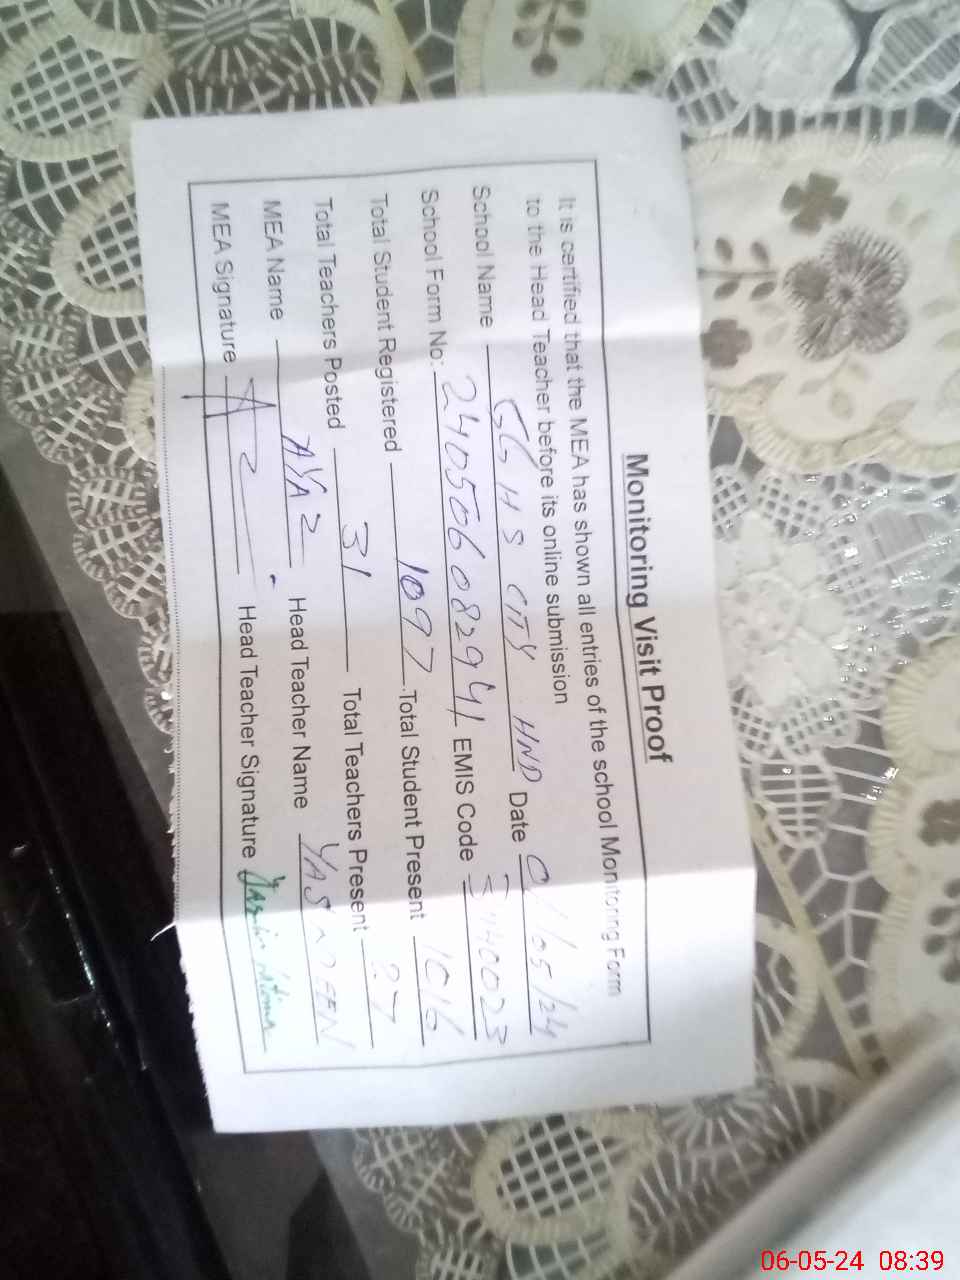 Monitoring Visit Proof
It is certified that the MEA has shown all entries of the school Monitoring Form
to the Head Teacher before its online submission
School Name GGHS CITY HND Date /05/24
School Form No: 240506082941 EMIS Code
Total Student Registered 1097 Total Student Present 1016
Total Teachers Posted 31 Total Teachers Present 27
MEA Name AYAZ Head Teacher Name YASMEEN
MEA Signature Head Teacher Signature
06-05-24 08:39